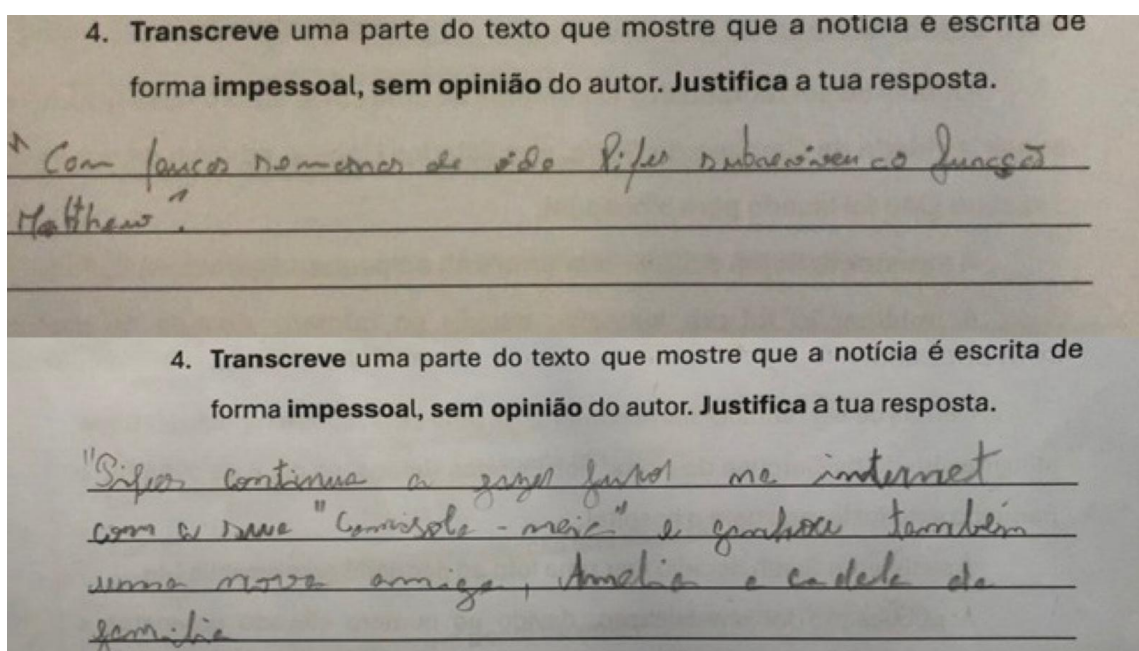 4. Transcreve uma parte do texto que mostre que a notícia é escrita de
forma impessoal, sem opinião do autor. Justifica a tua resposta.
"Com poucas semanas de vida Pifes subreviveu ao furacão
Matthew".
4. Transcreve uma parte do texto que mostre que a notícia é escrita de
forma impessoal, sem opinião do autor. Justifica a tua resposta.
continua a furor na internet
com a sua "Camisola - meia" e ganhou também
uma nova amiga, Amélia a cadela da
família